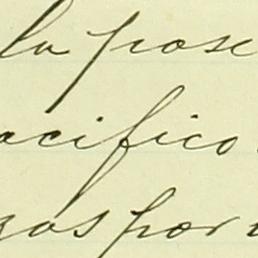 la pose
acifico
zos por